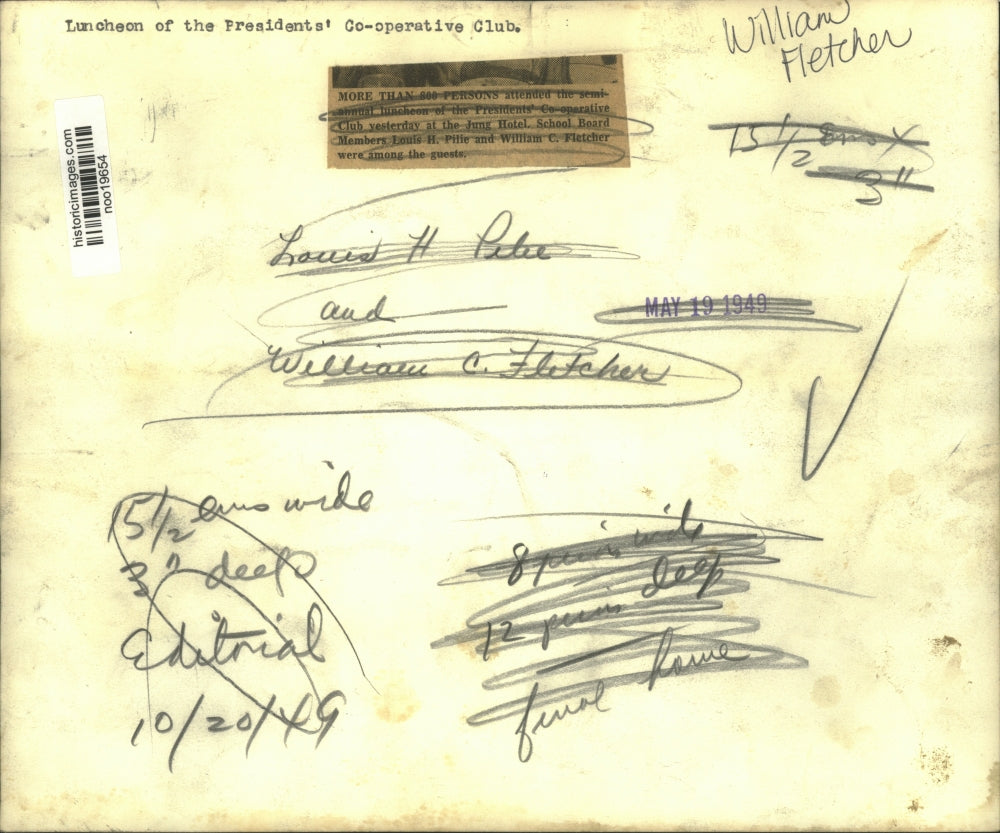 Luncheon of the Presidents' Co-operative Club.
William
Fletcher
MORE THAN 800 PERSONS attended the semi-
annual luncheon of the Presidents' Co-operative
Club yesterday at the Jung Hotel. School Board
Members Louis H. Pilie and William C. Fletcher
were among the guests.
15 1/2 ems x
3"
historicimages.com
noo19654
Louis H Pilie
and
MAY 19 1949
William C. Fletcher
15 1/2 ems wide
3" deep
Editorial
10/20/49
8 wide
12 deep
final home